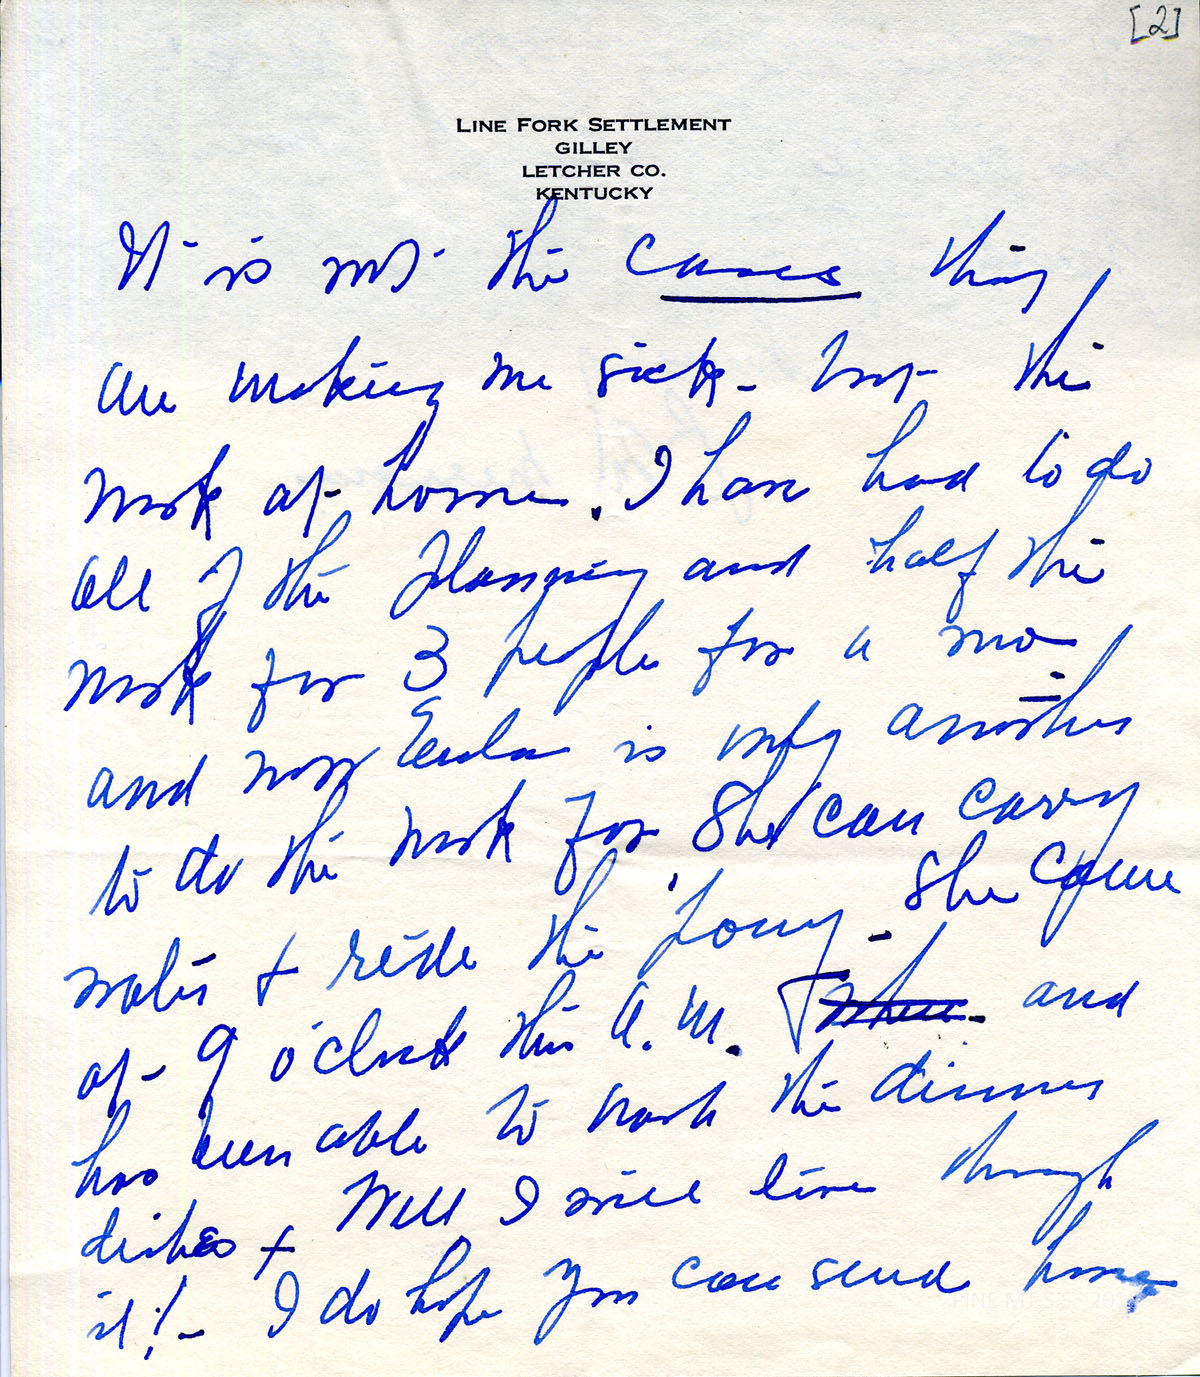 [2]
LINE FORK SETTLEMENT
GILLEY
LETCHER CO.
KENTUCKY
It is not the cases thing
are making me sick - but the
work at home. I have had to do
all of the planning and half the
work for 3 people for a mo
and now Eula is only another
to do the work for She can carry
water & ride the pony - She came
at 9 o'clock this A.M. and
has been able to wash the dinner
dishes + Well I will live through
it! - I do hope you can send